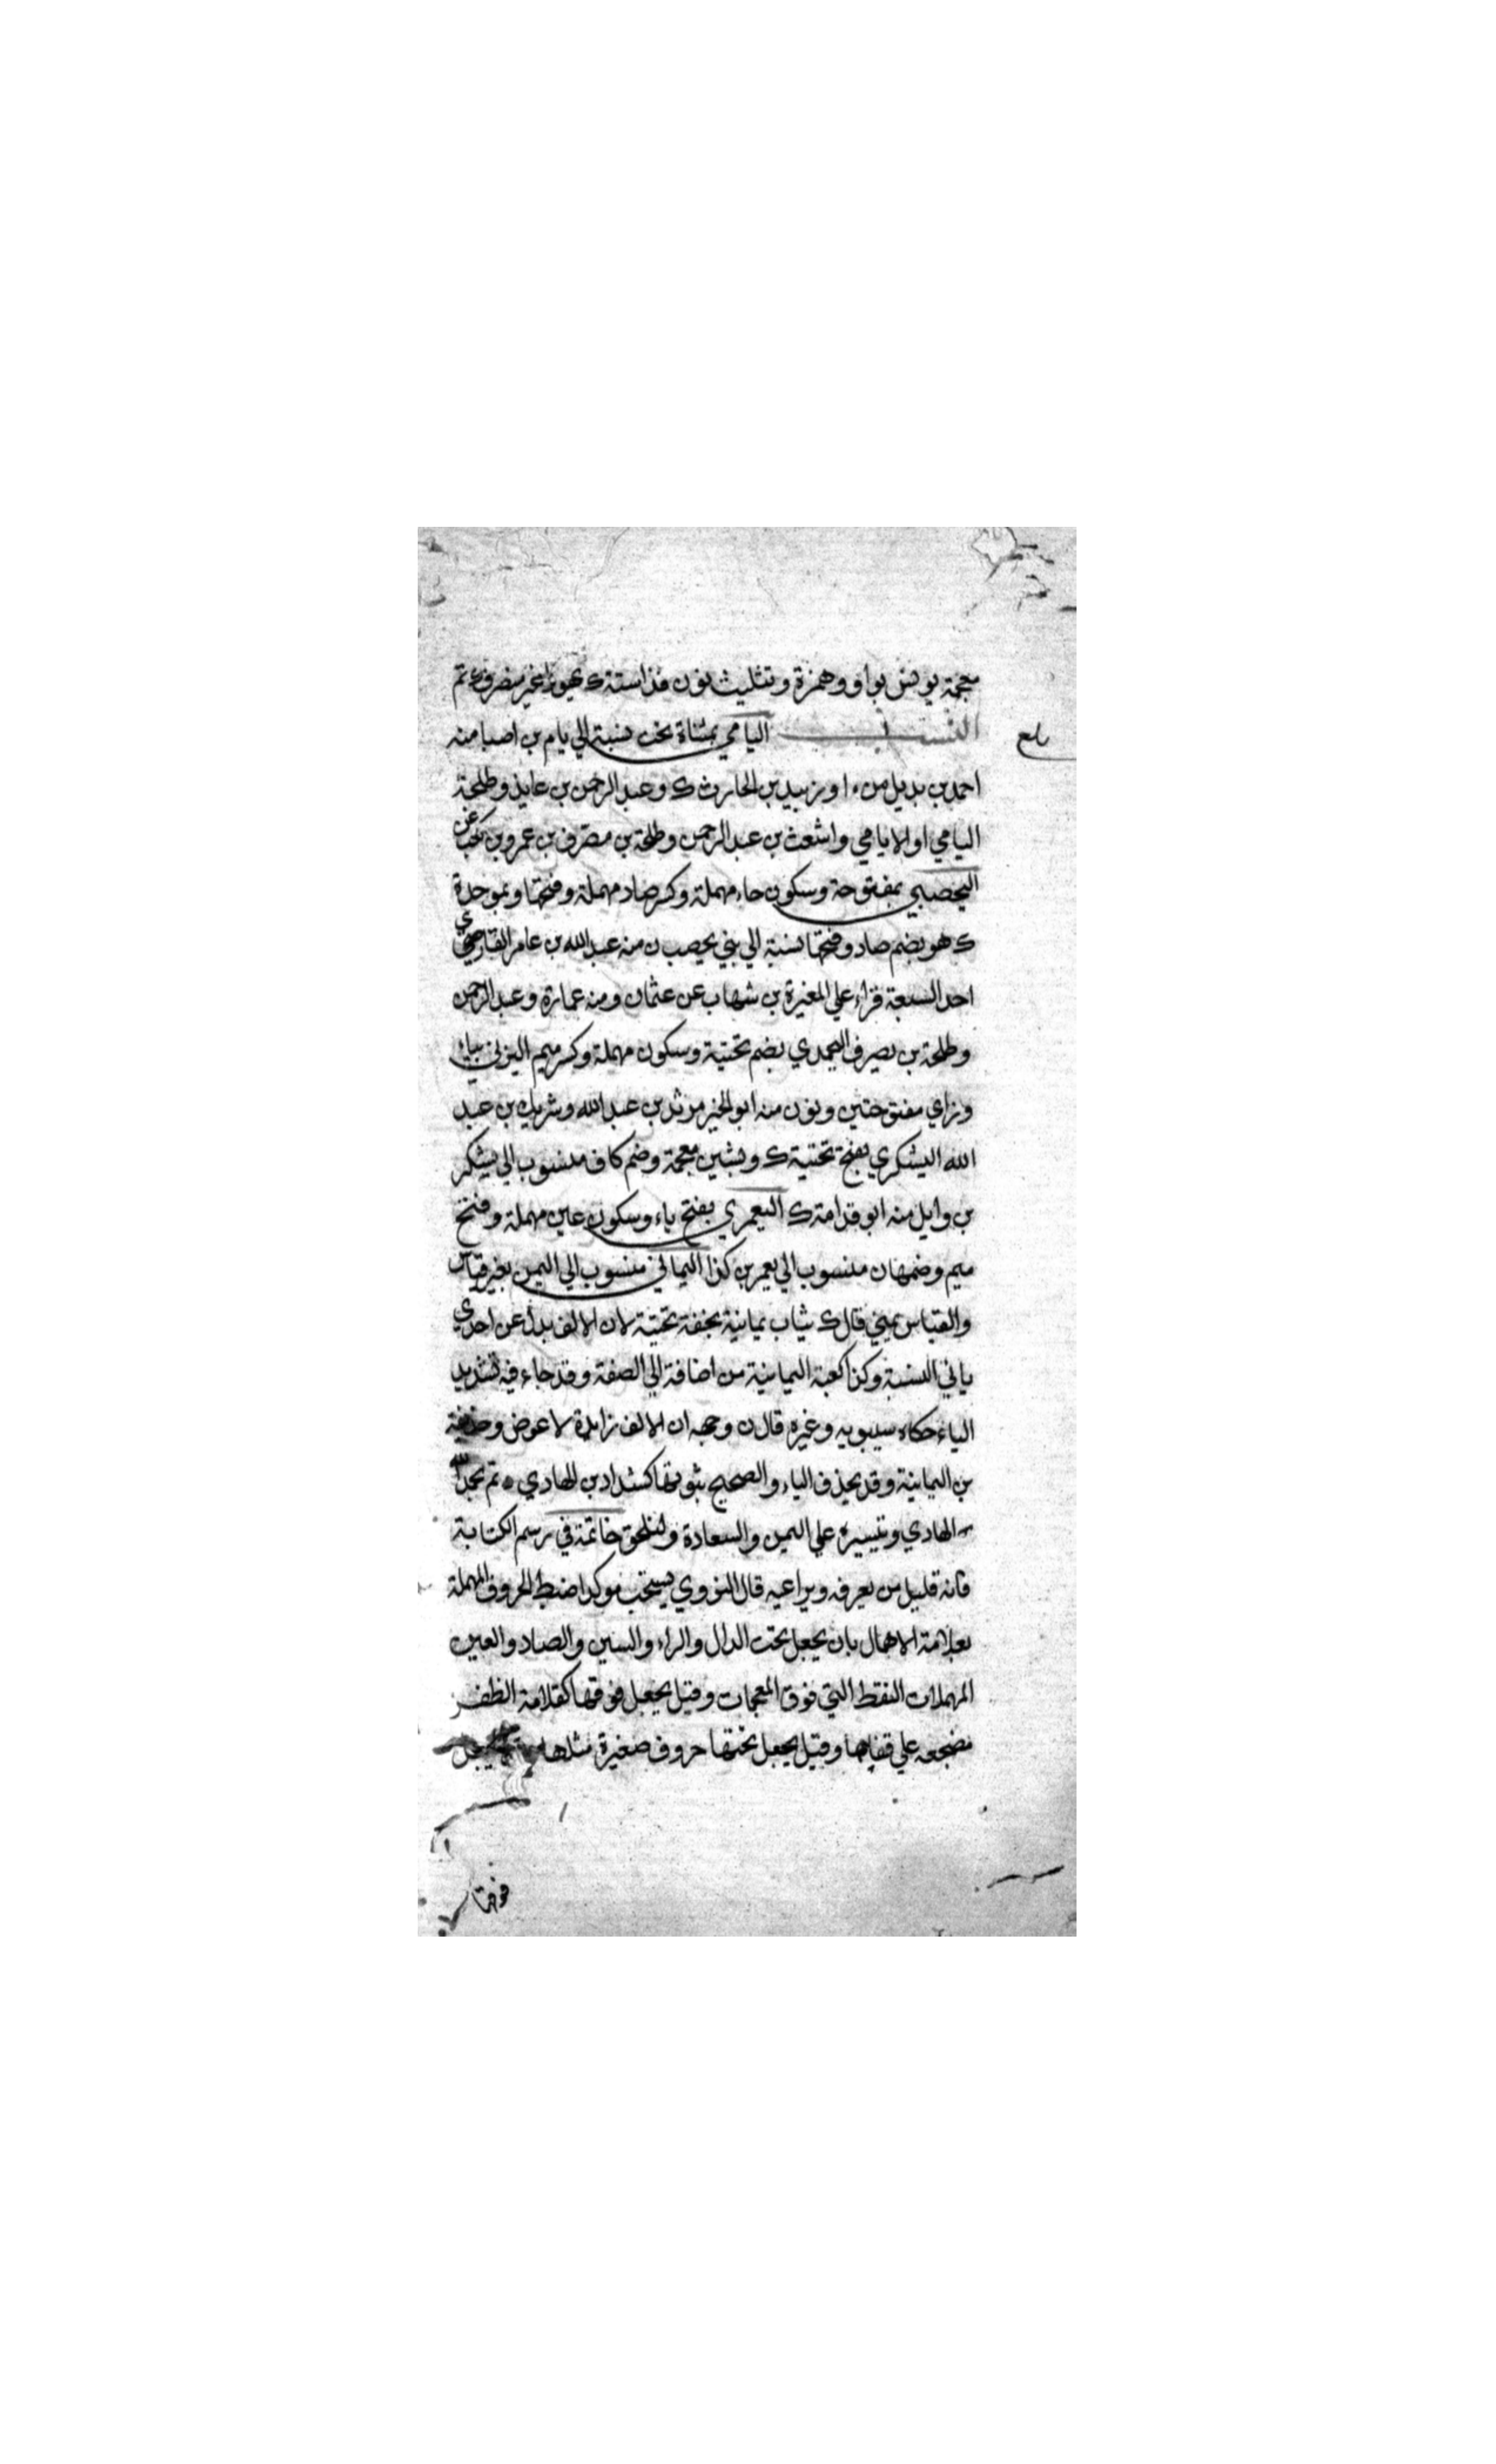 معجمة يونس بواو وهمزة وتثليث نون فذا ستة ك يهودا غير مصروف تم
النسب اليامي بمثناة تحت نسبة الي يام بن اصبا منه
احمد بن بديل من ا وزبيد بن الحارث ك وعبد الرحمن بن عايذ وطلحة
اليامي او الايامي واشعث بن عبد الرحمن وطلحة بن مصرف بن عمرو بن كعب
اليحصبي بمفتوحة وسكون حاء مهملة وكسر صاد مهملة وفتحها وبموحدة
ك هو بضم صاد وفتحها نسبة الي بني يحصب ن منه عبد الله بن عامر القاري
احد السبعة قراء علي المغيرة بن شهاب عن عثمان ومنه عمارة وعبد الرحمن
وطلحة بن يصرف اليحمدي بضم تحتية وسكون مهملة وكسر ميم اليزني بياء
وزاي مفتوحتين ونون منه ابو الخير مرثد بن عبد الله وشريك بن عبد
الله اليشكري بفتح تحتية ك وبشين معجمة وضم كاف منسوب الي يشكر
بن وايل منه ابو قدامة ك اليعمري بفتح ياء وسكون عين مهملة وفتح
ميم وضمها ن منسوب الي يعمر بن كذا اليماني منسوب الي اليمن بغير قياس
والقياس يمني قال ك ثياب يمانية بخفة تحتية لان الالف بدل عن احدي
يائي النسبة وكذا كعبة اليمانية من اضافة الي الصفة وقد جاء فيه تشديد
الياء حكاه سيبويه وغيره قال ن وجهه ان الالف زايدة لا عوض وحذيفة
بن اليمانية وقد يحذف الياء والصحيح ثبوتها كشداد بن الهادي ه تم بحمد الله
الهادي وتيسيره علي اليمن والسعادة ولنلحق خاتمة في رسم الكتابة
فانه قليل من يعرفه ويراعيه قال النووي يستحب موكدا ضبط الحروف المهملة
بعلامة الاهمال بان يجعل تحت الدال والراء والسين والصاد والعين
المهملات النقط التي فوق المعجمات وقيل يجعل فوقها كقلامة الظفر
مضجعه علي قفاها وقيل يجعل تحتها حروف صغيرة مثلها يجعل
فوقها